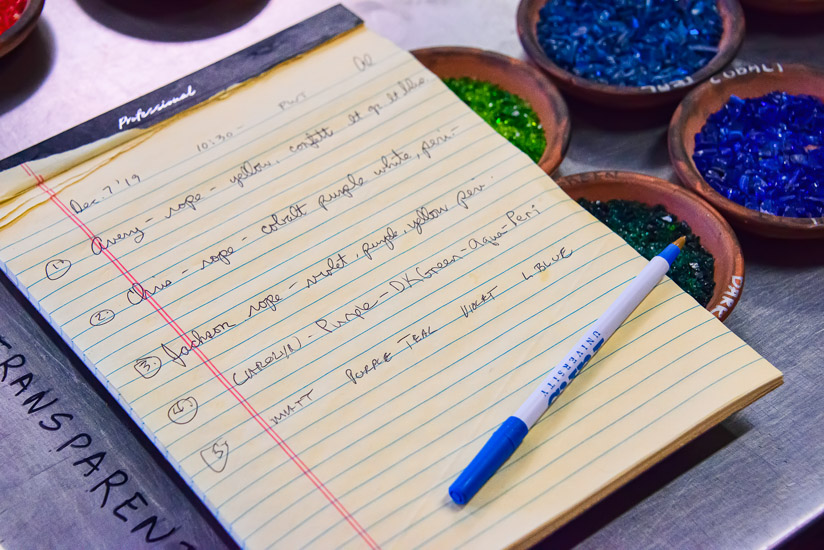 Professional
Dec. 7 '19
10:30-
① Avery - rope - yellow, confetti lt gr lt blue
② Chris - rope - cobalt purple white, peri-
③ Jackson rope - violet, purple, yellow peri.
④ CAROLYN - Purple - DK Green - aqua - Peri
⑤ MATT PURPLE TEAL VIOLET L. BLUE
UNIVERSITY
TRANSPARENT
TEAL
DARK